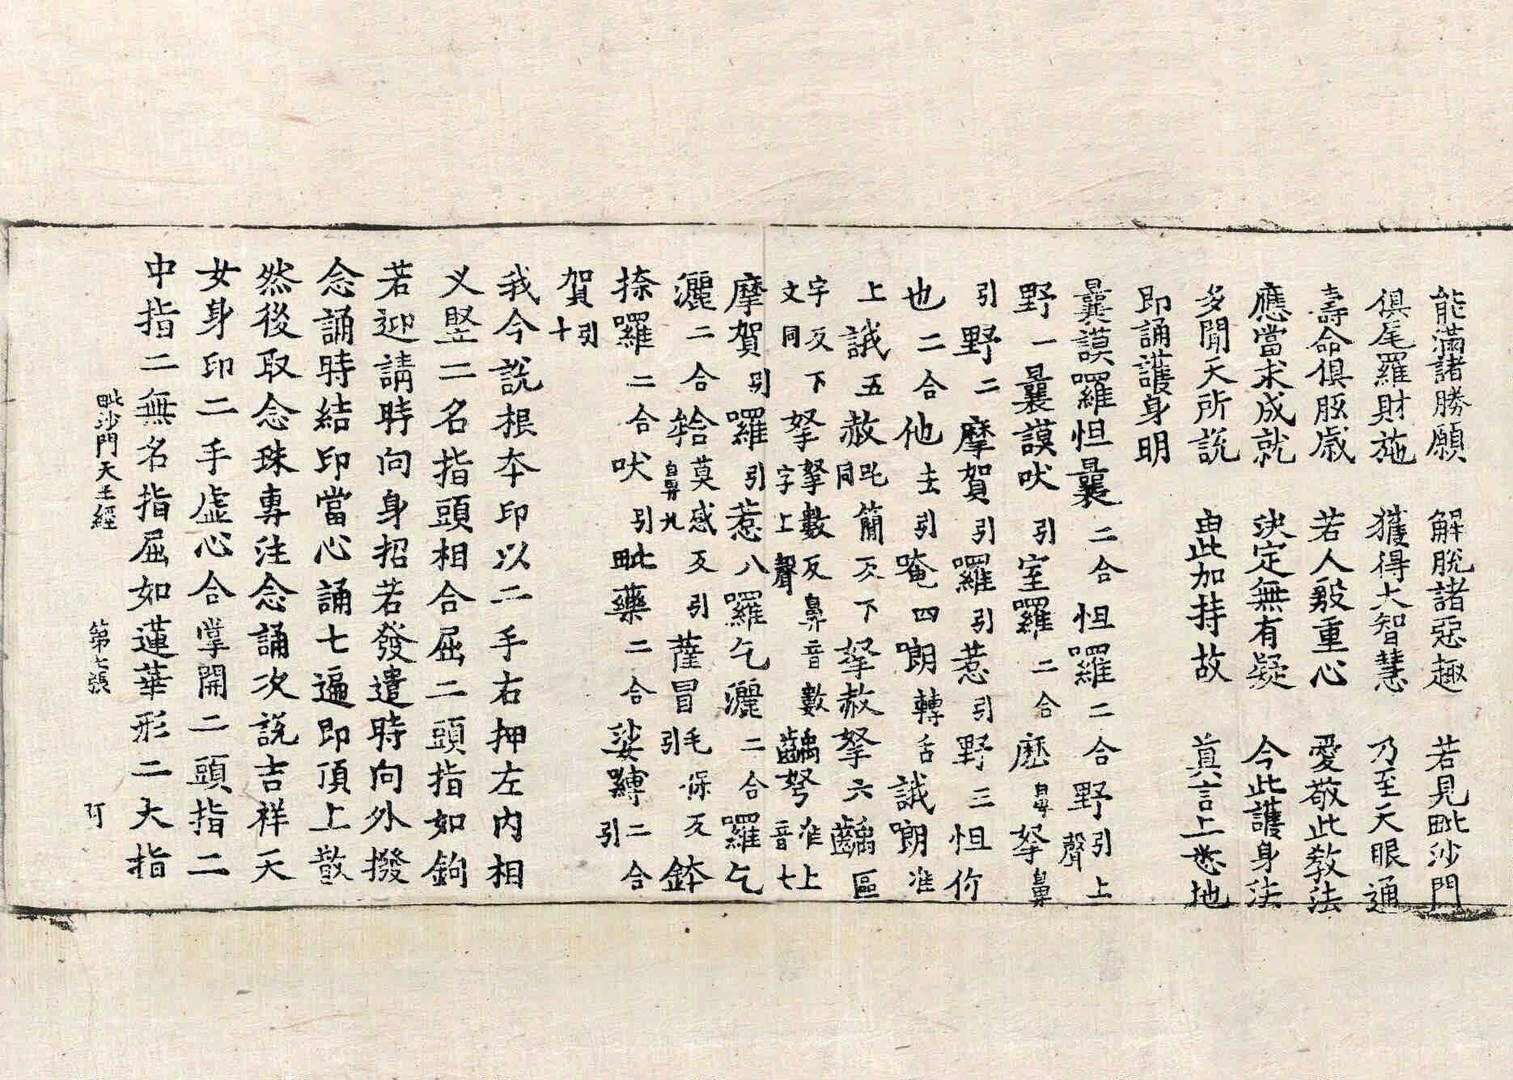 能滿諸勝願　解脫諸惡趣　若見毗沙門
俱尾羅財施　獲得大智慧　乃至天眼通
壽命俱胝歲　若人殷重心　愛敬此教法
應當求成就　決定無有疑　今此護身法
多聞天所說　由此加持故　真言上悉地
即誦護身明
曩謨囉怛曩二合怛囉二合野引上聲
野一曩謨吠引室囉二合麽鼻拏鼻
引野二摩賀引囉引惹引野三怛你
也二合他去引唵四嚩轉舌誐嚩准
上誐五赦吒簡反下同拏赦拏六齲區
字反下文同拏拏數反鼻音數字上聲齲弩准上音七
摩賀引囉引惹八囉乞灑二合囉乞
灑二合𤚥莫感反引鼻九薩冒毛保反引鉢
捺囉二合吠引毗藥二合娑嚩二合引
賀引十
我今說根本印以二手右押左內相
义竪二名指頭相合屈二頭指如鉤
若迎請時向身招若發遣時向外撥
念誦時結印當心誦七遍即頂上散
然後取念珠專注念誦次說吉祥天
女身印二手虛心合掌開二頭指二
中指二無名指屈如蓮華形二大指
毗沙門天王經　第七張　阿